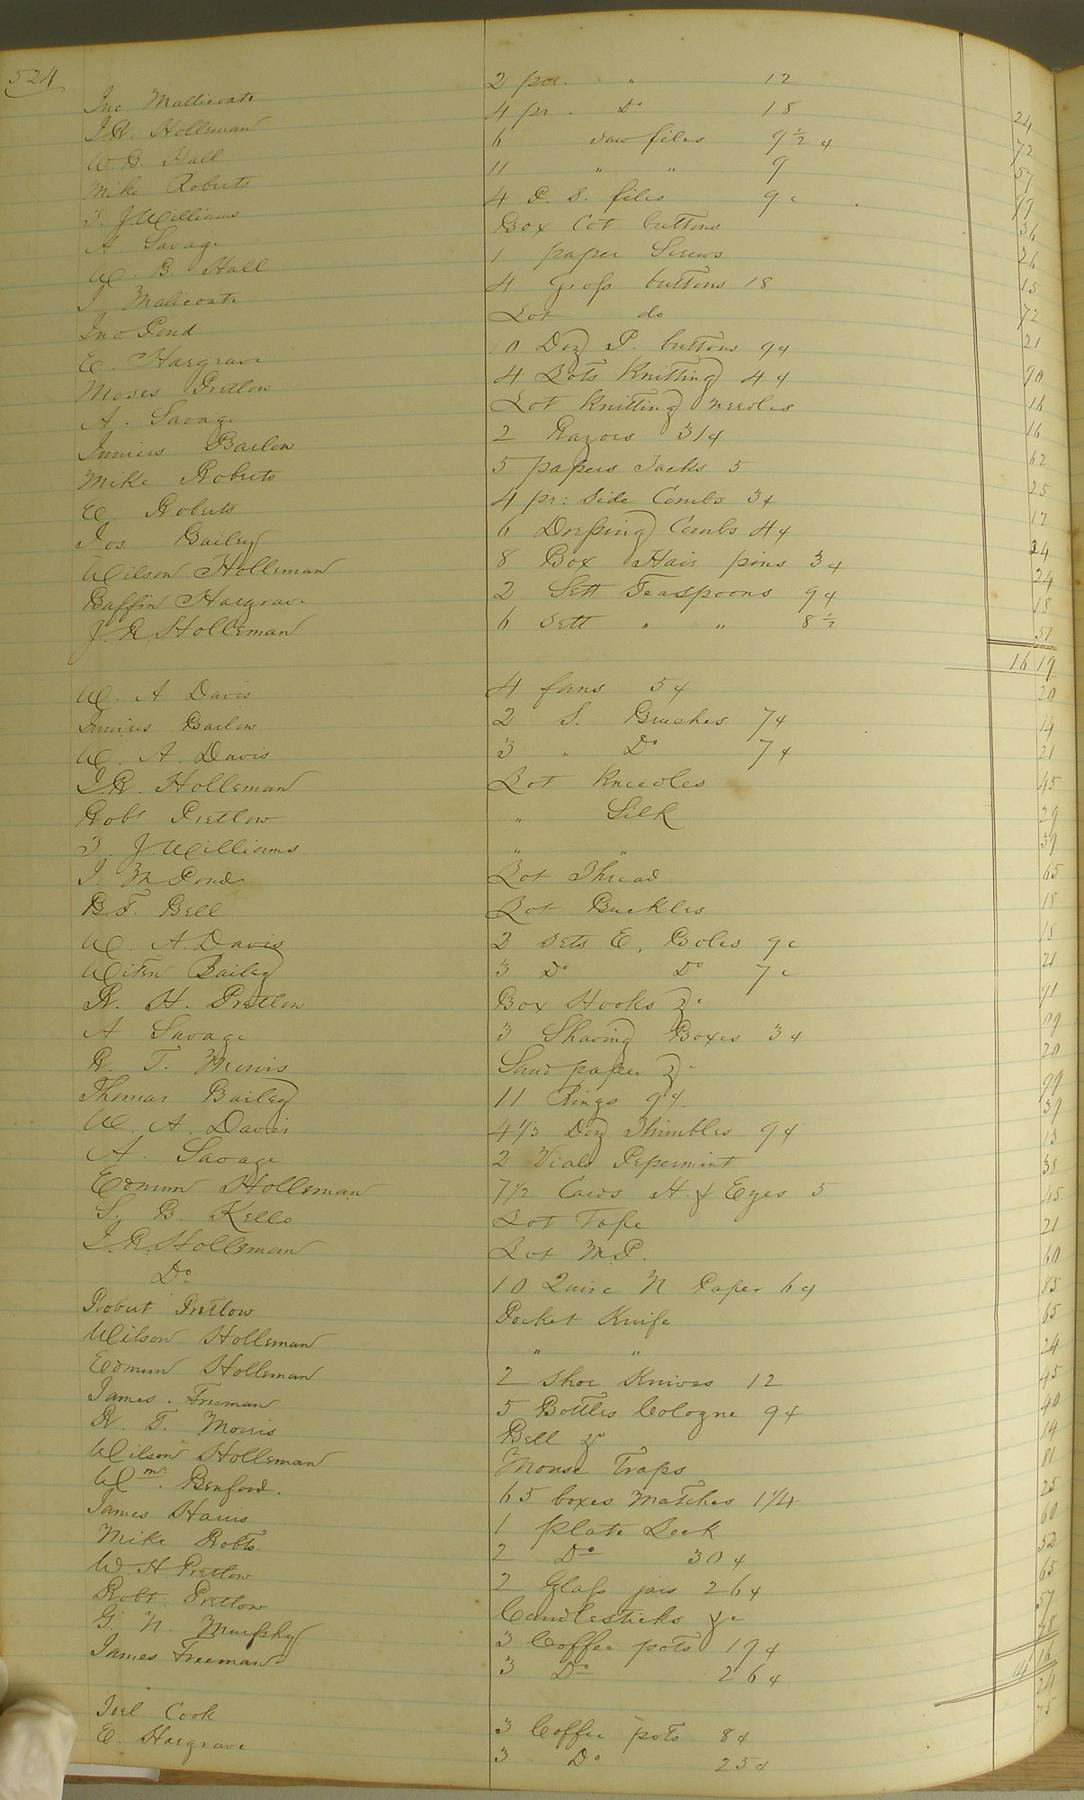 524
Jno Mallicoate 2 pcs. " 12 24
J.R. Holleman 4 pr. Do 18 72
W.B. Hall 6 saw files 9½ ¢ 57
Mike Roberts 11 " " 9 99
T. J. Williams 4 P. S. files 9c 36
A Savage Box Cot buttons 26
W. B. Hall 1 paper Screws 15
J Malicoate 4 gross buttons 18 72
Jno Pond Lot do 21
E. Hargrave 10 Doz P. buttons 9¢ 90
Moses Pretlow 4 Lots Knitting 4¢ 16
A. Savage Lot Knitting needles 16
Junius Barlow 2 Razors 31¢ 62
Mike Roberts 5 papers Tacks 5 25
E Roberts 4 pr: Side Combs 3¢ 12
Jos. Bailey 6 Dressing Combs 4¢ 24
Wilson Holleman 8 Box Hair pins 3¢ 24
Baffin Hargrave 2 Sett Teaspoons 9¢ 18
J R Holleman 6 Sett " " 8½ 51
16 19
W. A Davis 4 fans 5¢ 20
Junius Barlow 2 S. Brushes 7¢ 14
W. A. Davis 3 " Do 7¢ 21
J.R. Holleman Lot Kneedles 45
Robt Pretlow " Silk 29
T. J. Williams " " 39
J. M Pond Lot Thread 65
B.F. Bell Lot Buckles 18
W. A. Davis 2 Sets E, Boles 9c 18
Bailey 3 Do Do 7c 21
R. H. Pretlow Box Hooks &c 91
A Savage 3 Shaving Boxes 3¢ 09
R. T. Morris Sand paper &c 20
Thomas Bailey 11 Rings 9¢ 99
W. A. Davis 4⅓ Doz Thimbles 9¢ 39
A. Savage 2 Vials Pepermint 13
Edmun Holleman 7½ Cards H. & Eyes 5 38
S. B. Kello Lot Tape 45
J.R. Holleman Lot M.P. 21
Do 10 Quire N Paper 6¢ 60
Robert Pretlow Pocket Knife 85
Wilson Holleman " " 65
Edmun Holleman 2 Shoe Knives 12 24
James. Freeman 5 Bottles Cologne 9¢ 45
R. T. Morris Bell &c 40
Wilson Holleman Mouse Traps 14
Wm. Benford. 65 boxes Matches 1¼ 81
James Harris 1 plate Lock 25
Mike Robts. 2 Do 30¢ 60
W. H Pretlow 2 Glass jars 26¢ 52
Robt. Pretlow Candlesticks &c 65
G. N. Murphy 3 Coffee pots 19¢ 57
James Freeman 3 Do 26¢ 78
16
Joel Cook 3 Coffee pots 8¢ 24
E. Hargrave 3 Do 25¢ 75